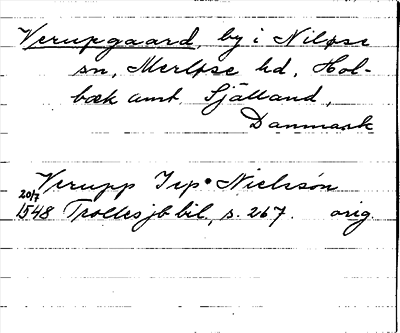 Verupgaard, by i Niløse
sn, Merløse hd, Hol-
bæk amt, Själland,
Danmark
Verupp Jep Nielssön
20/7
1548 Trolles jb bil, s. 267. orig.